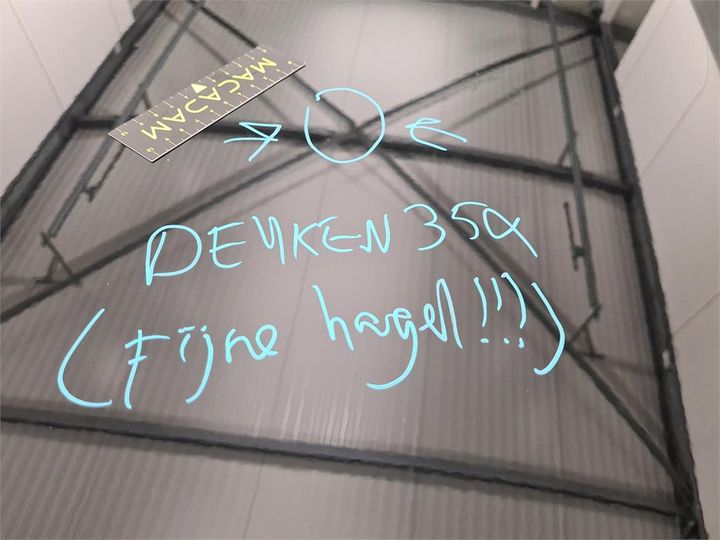 MACADAM
DEUKEN 35x
(Fijne hagel!!!)